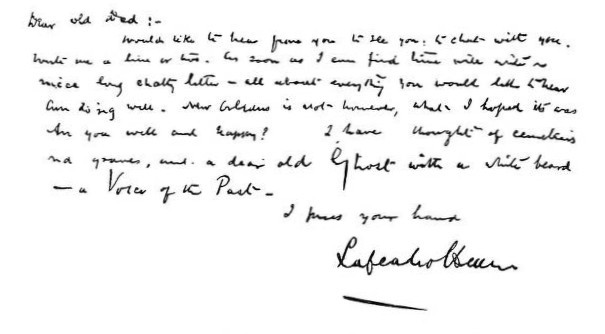 Dear old Dad :-
would like to hear from you to see you: to chat with you.
Write me a line or two. As soon as I can find time will write a
nice long chatty letter – all about everything you would like to hear
Am doing well. New Orleans is not however, what I hoped it was
Are you well and happy? I have thought of cemeteries
and graves, and a dear old Ghost with a white beard
— a Voice of the Past –
I press your hand
Lafcadio Hearn